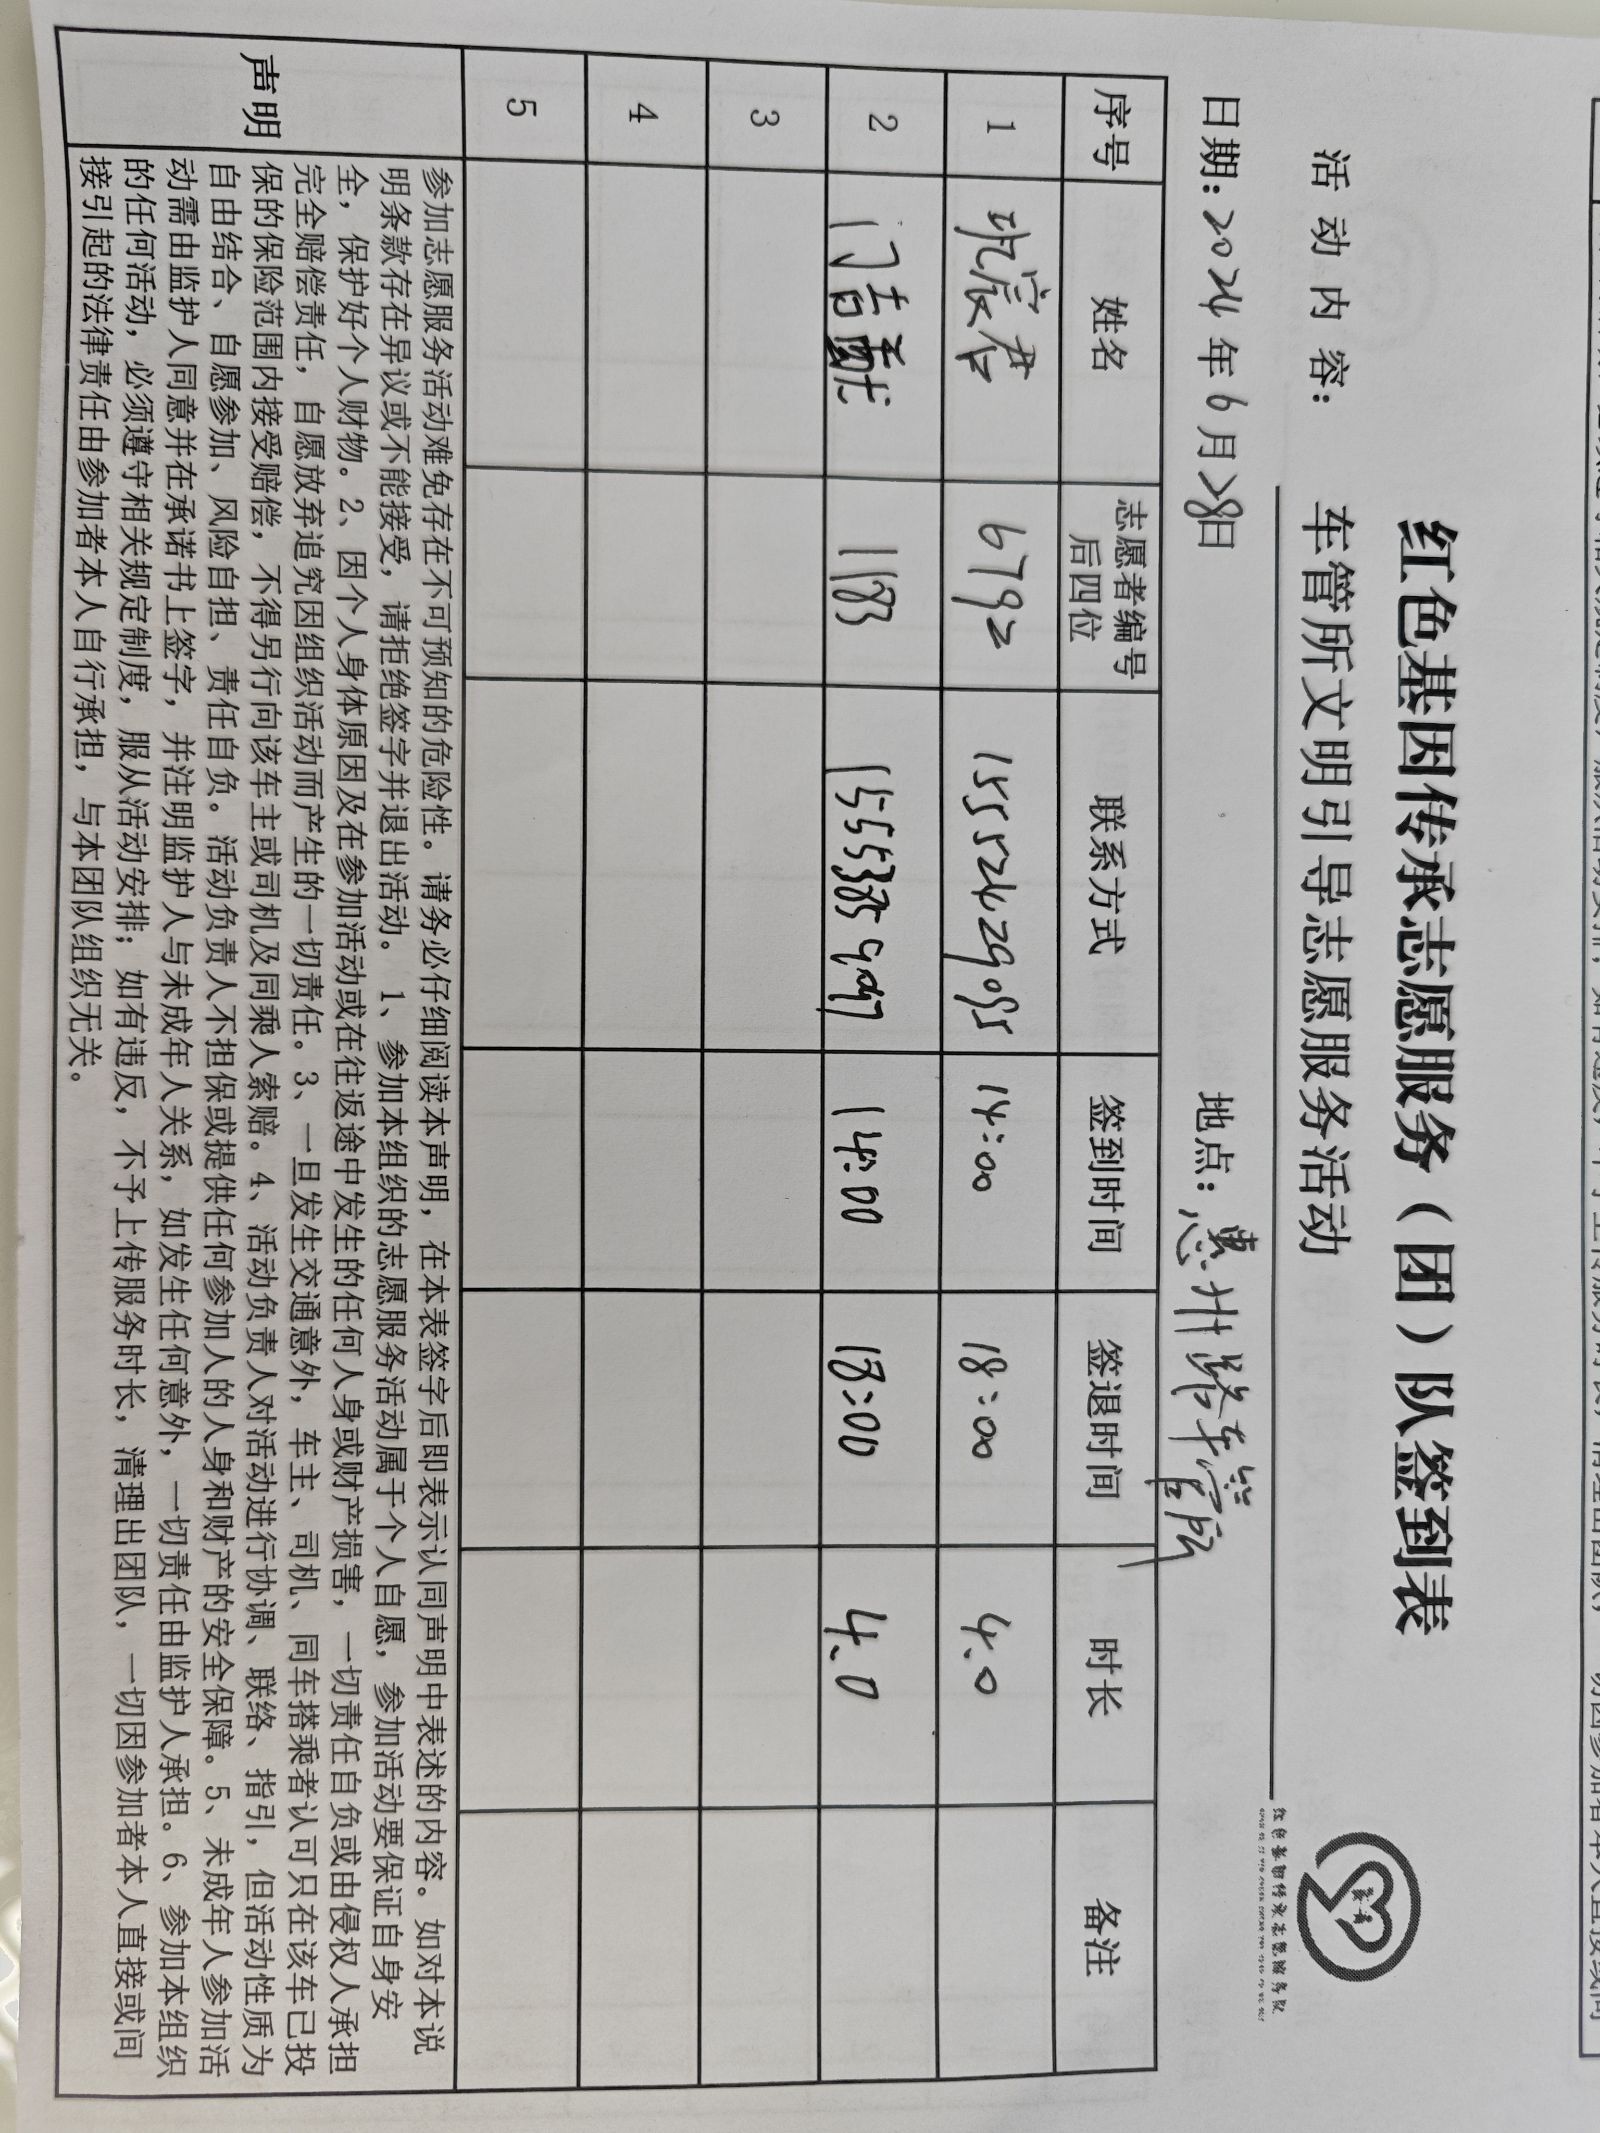 红色基因传承志愿服务（团）队签到表
红色基因传承志愿服务队
活动内容： 车管所文明引导志愿服务活动
日期：2024年6月28日 地点：惠州路车管所
序号 姓名 志愿者编号后四位 联系方式 签到时间 签退时间 时长 备注
1 6792 15552429085 14:00 18:00 4.0
2 1183 14:00 18:00 4.0
3
4
5
声明
参加志愿服务活动难免存在不可预知的危险性。请务必仔细阅读本声明，在本表签字后即表示认同声明中表述的内容。如对本说
明条款存在异议或不能接受，请拒绝签字并退出活动。 1、参加本组织的志愿服务活动属于个人自愿，参加活动要保证自身安
全，保护好个人财物。2、因个人身体原因及在参加活动或在往返途中发生的任何人身或财产损害，一切责任自负或由侵权人承担
完全赔偿责任，自愿放弃追究因组织活动而产生的一切责任。3、一旦发生交通意外，车主、司机、同车搭乘者认可只在该车已投
保的保险范围内接受赔偿，不得另行向该车主或司机及同乘人索赔。4、活动负责人对活动进行协调、联络、指引，但活动性质为
自由结合、自愿参加、风险自担、责任自负。活动负责人不担保或提供任何参加人的人身和财产的安全保障。5、未成年人参加活
动需由监护人同意并在承诺书上签字，并注明监护人与未成年人关系，如发生任何意外，一切责任由监护人承担。6、参加本组织
的任何活动，必须遵守相关规定制度，服从活动安排；如有违反，不予上传服务时长，清理出团队，一切因参加者本人直接或间
接引起的法律责任由参加者本人自行承担，与本团队组织无关。